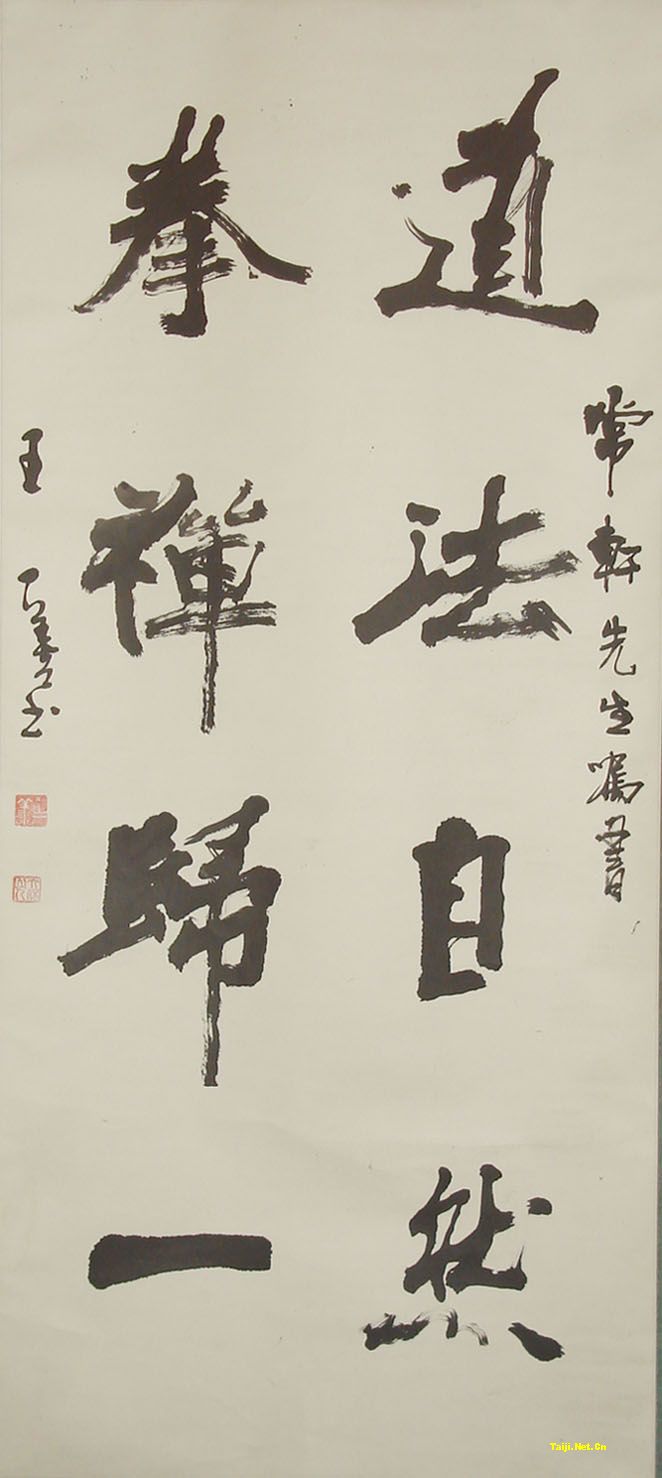 常軒先生嘱書
道法自然
拳禪歸一
王
Taiji.Net.Cn